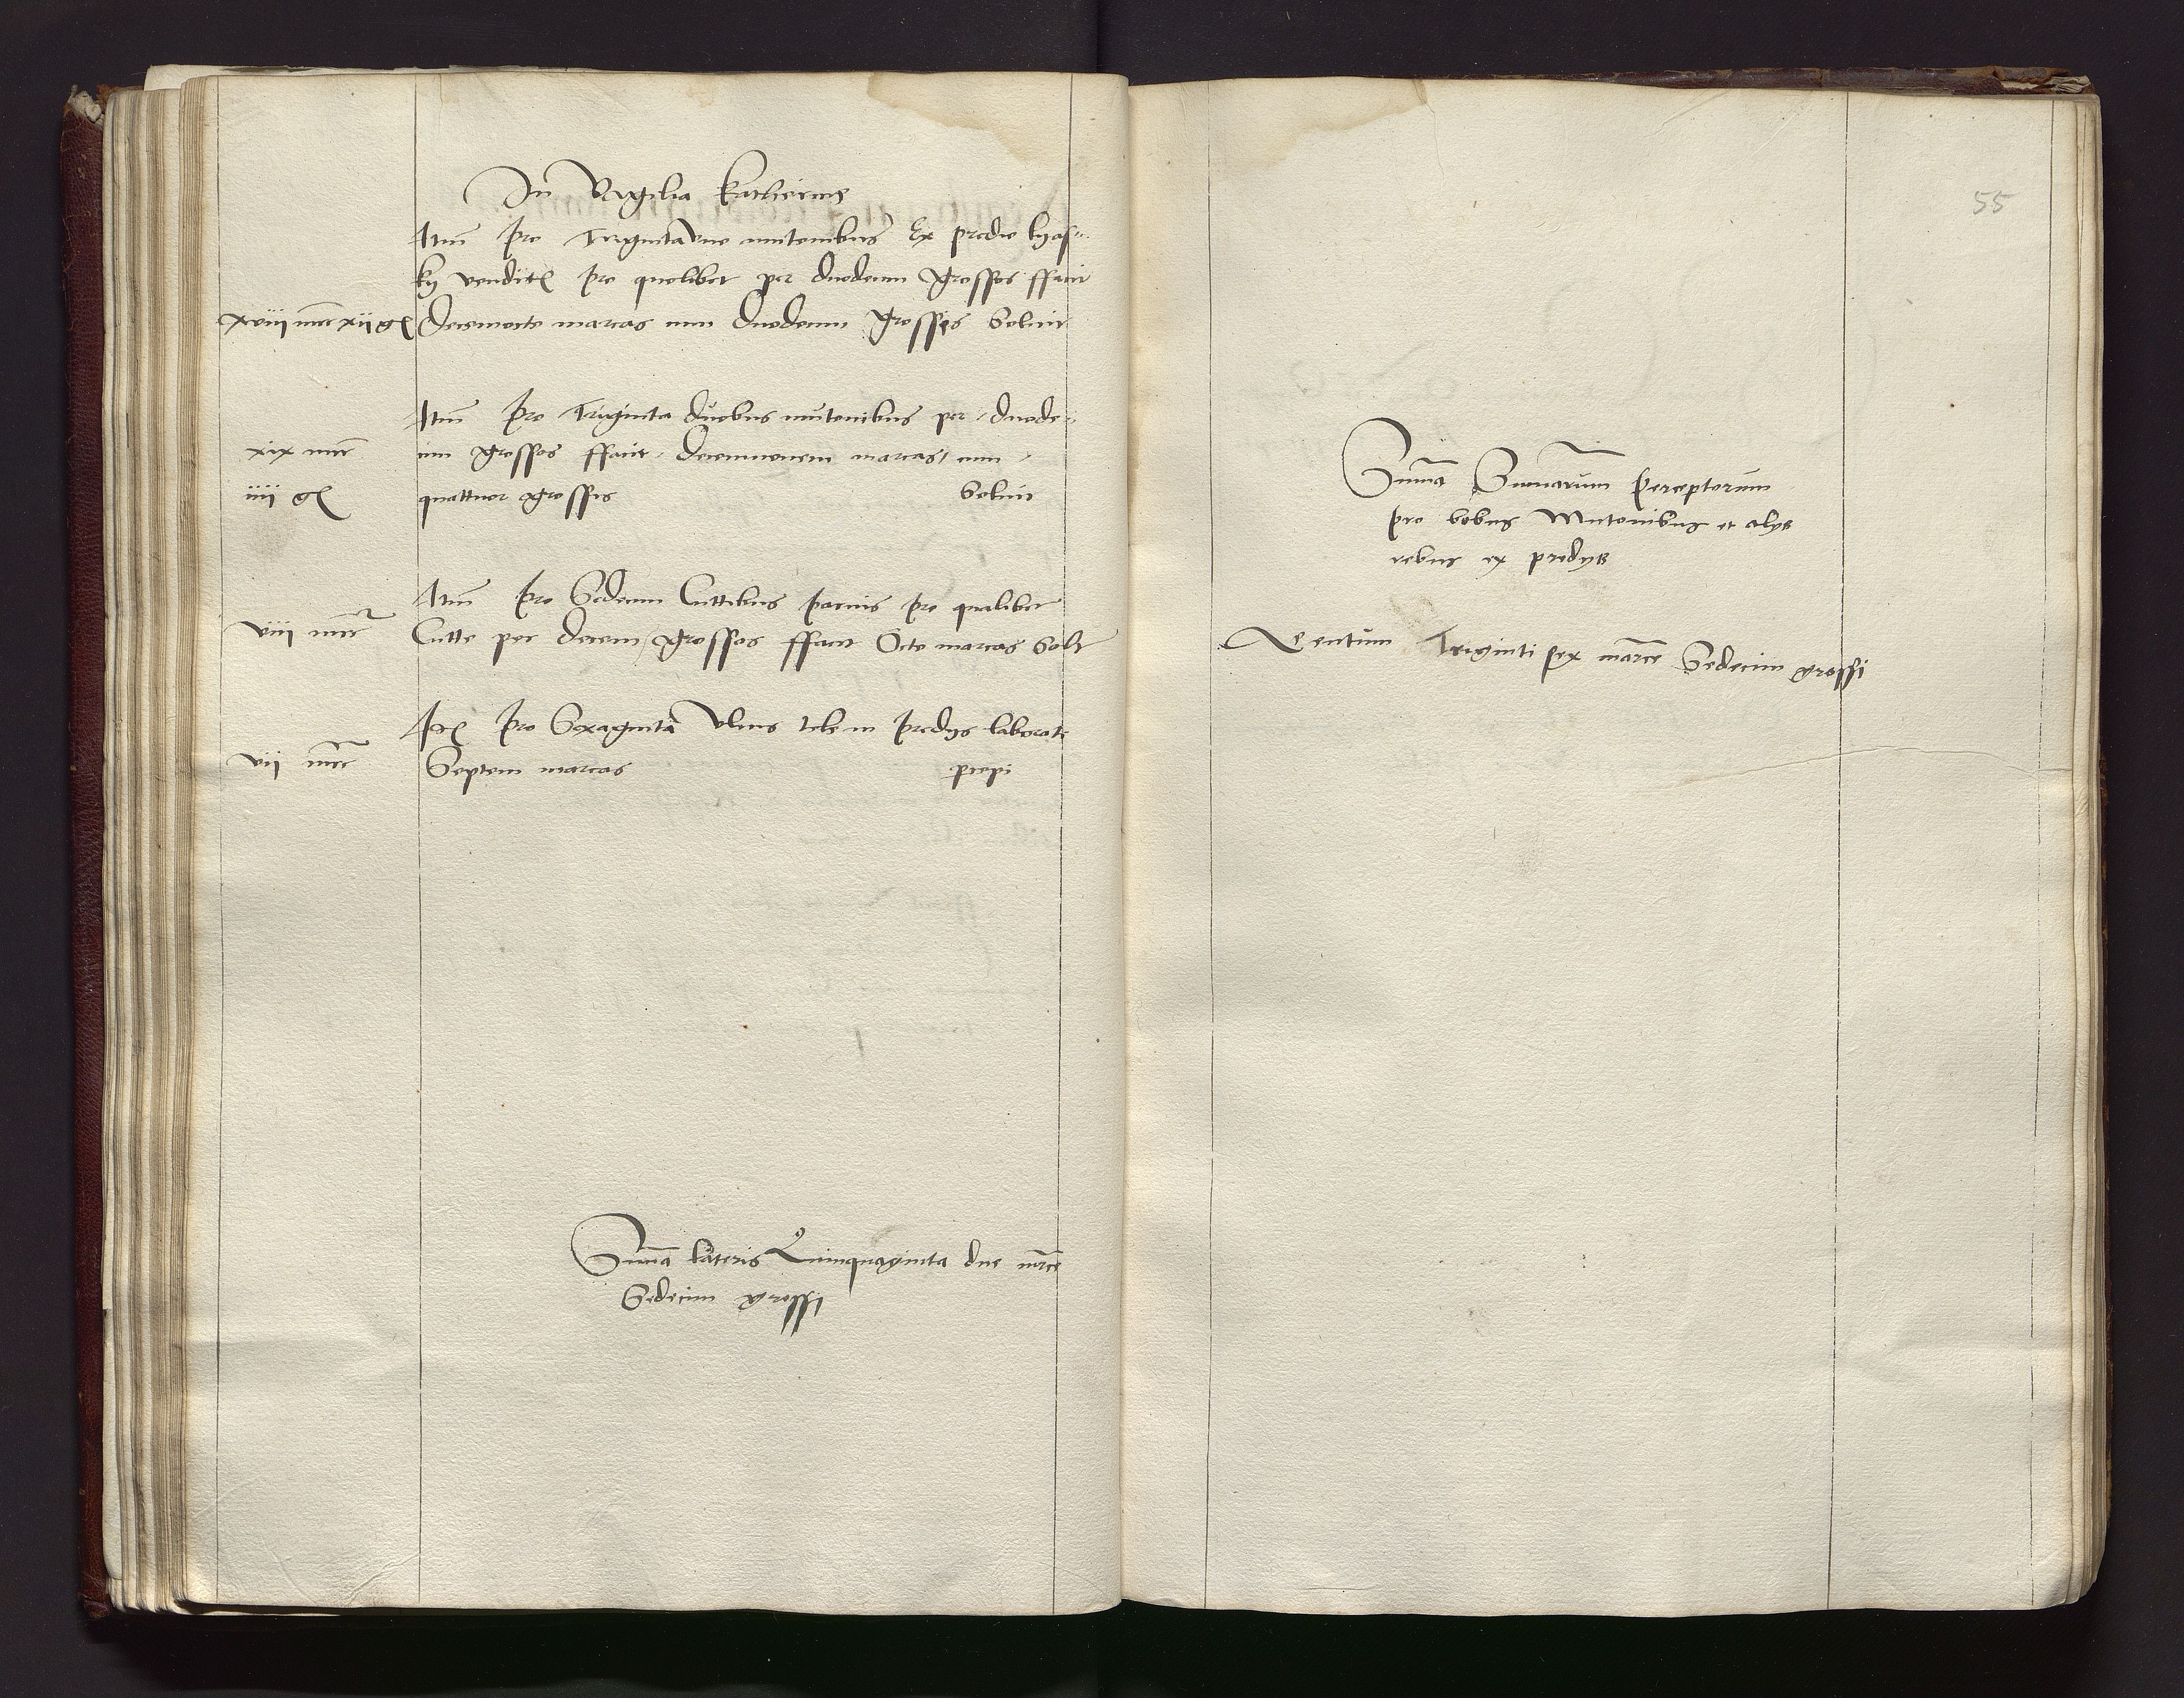 In Vigilia Katherine
Itm̄ pro Trigintavno mutonibus Ex predio lyas-
ky vendit pro quolibet per duodecim grossos ffacit
xviii mrc xii gͬ Decemocto marcas cum duodecim grossis Soluit
Itm̄ pro Triginta duobus mutonibus per duode-
xix mrc cim grossos ffacit Decemnouem marcas cum
iiii gͬ quattuor grossis Soluit
Itm̄ pro Sedecim Cuttibus paruis pro qualibet
viii mrc Cutte per decem grossos ffacit Octo marcas Solt
Itͬ pro Sexaginta Vlnis tele in predys laborate
vii mrc Septem marcas pcepi
Sum̄a lateris Quinquaginta due mrce
Sedecim grossi
55
Sum̄a Sum̄arum perceptorum
pro bobus Mutonibus et alys
rebus ex predys
Centum Triginti sex marce Sedecim grossi